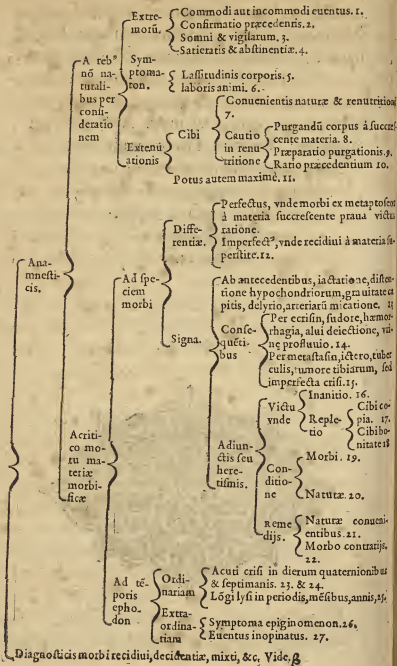 Extre-
morū.
Commodi aut incommodi euentus. 1.
Confirmatio præcedentis. 2.
Somni & vigilarum. 3.
Satietatis & abstinentiæ. 4.
A rebꝰ
nō na-
turali-
bus per
consi-
deratio
nem
Sym-
ptoma-
ton.
Lassitudinis corporis. 5.
laboris animi. 6.
Extenu
ationis
Cibi
Conuenientis naturæ & renutritioni
7.
Cautio
in renu
tritione
Purgandū corpus à succres
cente materia. 8.
Præparatio purgationis. 9.
Ratio præcedentium 10.
Potus autem maximè. 11.
Ana-
mnesti-
cis.
Acriti-
co mo-
tu ma-
teriæ
morbi-
ficæ
Ad spe-
ciem
morbi
Diffe-
rentiæ.
Perfectus, vnde morbi ex metaptosen
à materia succrescente praua victus
ratione.
Imperfectꝰ, vnde recidiui à materia su-
perstite. 12.
Signa.
Ab antecedentibus, iactatione, disten-
tione hypochondriorum, grauitate ca
pitis, delyrio, arteriarū micatione. 13
Conse-
quēti-
bus
Per ecrisin, sudore, hæmor-
rhagia, alui deiectione, vri-
nę profluuio. 14.
Per metastasin, ictero, tuber
culis, tumore tibiarum, sed
imperfecta crisi. 15.
Adiun-
ctis seu
here-
tismis.
Victu
vnde
Inanitio. 16.
Reple-
tio
Cibi co-
pia. 17.
Cibi bo-
nitate 18
Con-
ditio-
ne
Morbi. 19.
Naturæ. 20.
Reme
dijs.
Naturæ conueni-
entibus. 21.
Morbo contrarijs.
22.
Ad tē-
poris
epho-
don
Ordi-
nariam
Acuti crisi in dierum quaternionibus
& septimanis. 23. & 24.
Lōgi lysi in periodis, mēsibus, annis, 25.
Extra-
ordina-
riam
Symptoma epiginomenon. 26.
Euentus inopinatus. 27.
Diagnosticis morbi recidiui, decidentiæ, mixti, &c. Vide, β